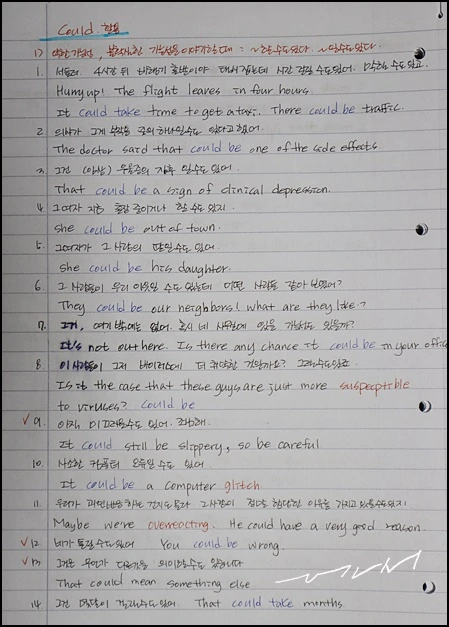 Could 활용
1) 약한가능성, 불확실한 가능성을 이야기할 때 : ~할수도있다. ~일수도있다.
1. 서둘러. 4시간 뒤 비행기 출발이야 택시 잡는데 시간 걸릴 수도있어. 막힐 수도 있고.
Hurry up! The flight leaves in four hours.
It could take time to get a taxi. There could be traffic.
2. 의사가 그게 부작용 중의 하나일수도 있다고 했어.
The doctor said that could be one of the side effects
3. 그건 (임상) 우울증의 징후 일수도 있어.
That could be a sign of clinical depression.
4. 그여자 지금 출장 중이거나 할 수도 있지.
she could be out of town.
5. 그여자가 그 사람의 딸일수도 있어.
she could be his daughter.
6. 그 사람들이 우리 이웃일 수도 있는데 어떤 사람들 같아 보였어?
They could be our neighbors! What are they like?
7. 그거, 여기 밖에는 없어. 혹시 네 사무실에 있을 가능성도 있을까?
It's not out here. Is there any chance it could be in your office
8. 이 사람들이 그저 바이러스에 더 취약한 건일까요? 그럴수도있죠
Is it the case that these guys are just more suspeceptible
to viruses? Could be
✓9. 아직 미끄러울수도 있어. 조심해.
It could still be slippery, so be careful
10. 사소한 컴퓨터 오류일 수도 있어.
It could be a computer glitch
11. 우리가 과민반응 하는 건지도 몰라 그사람이 정말 합당한 이유를 가지고 있을수도있지
Maybe we're overreacting. He could have a very good reason.
✓12. 네가 틀릴 수도있어 You could be wrong.
✓13. 그것은 무언가 다른것을 의미할수도 있습니다
That could mean something else
14. 그건 몇달이 걸릴수도있어. That could take months.